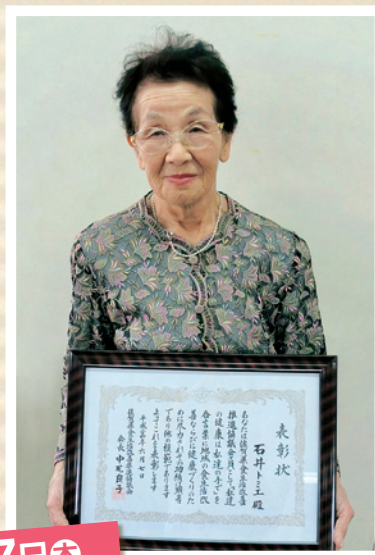 表彰状
石井トミエ殿
あなたは佐賀県食生活改善
推進協議会員として「私達
の健康は私達の手で」を
合言葉に地域の食生活改
善ならびに健康づくりのた
めに尽力された功績は顕著
であり他の模範であります
よってこれを表彰します
平成 年六月七日
佐賀県食生活改善推進協議会
会長 中尾 子
7日木